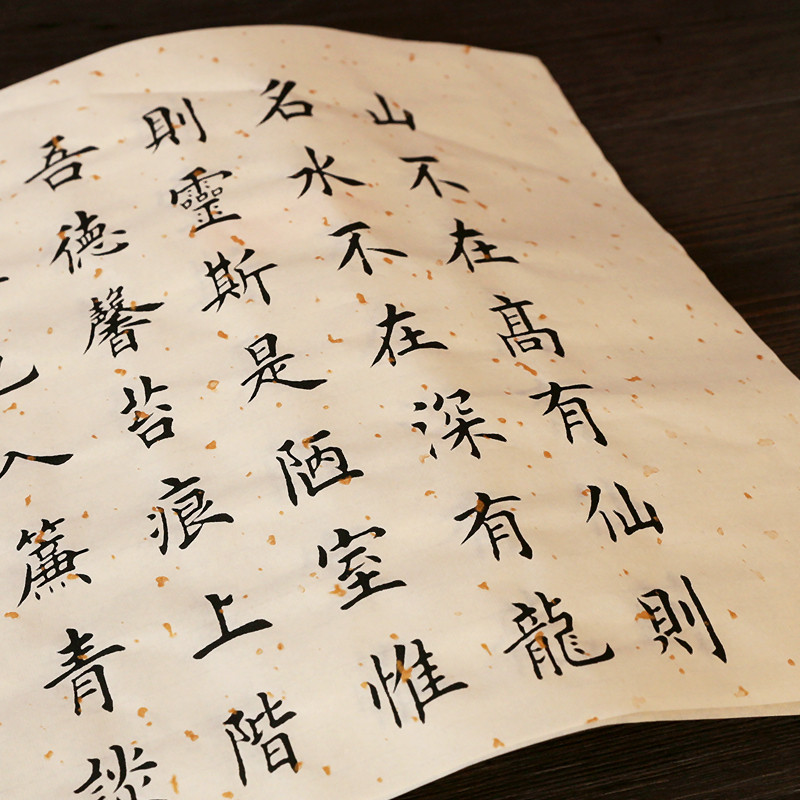 山不在髙有仙則
名水不在深有龍
則靈斯是陋室惟
吾德馨苔痕上階
色入簾青談